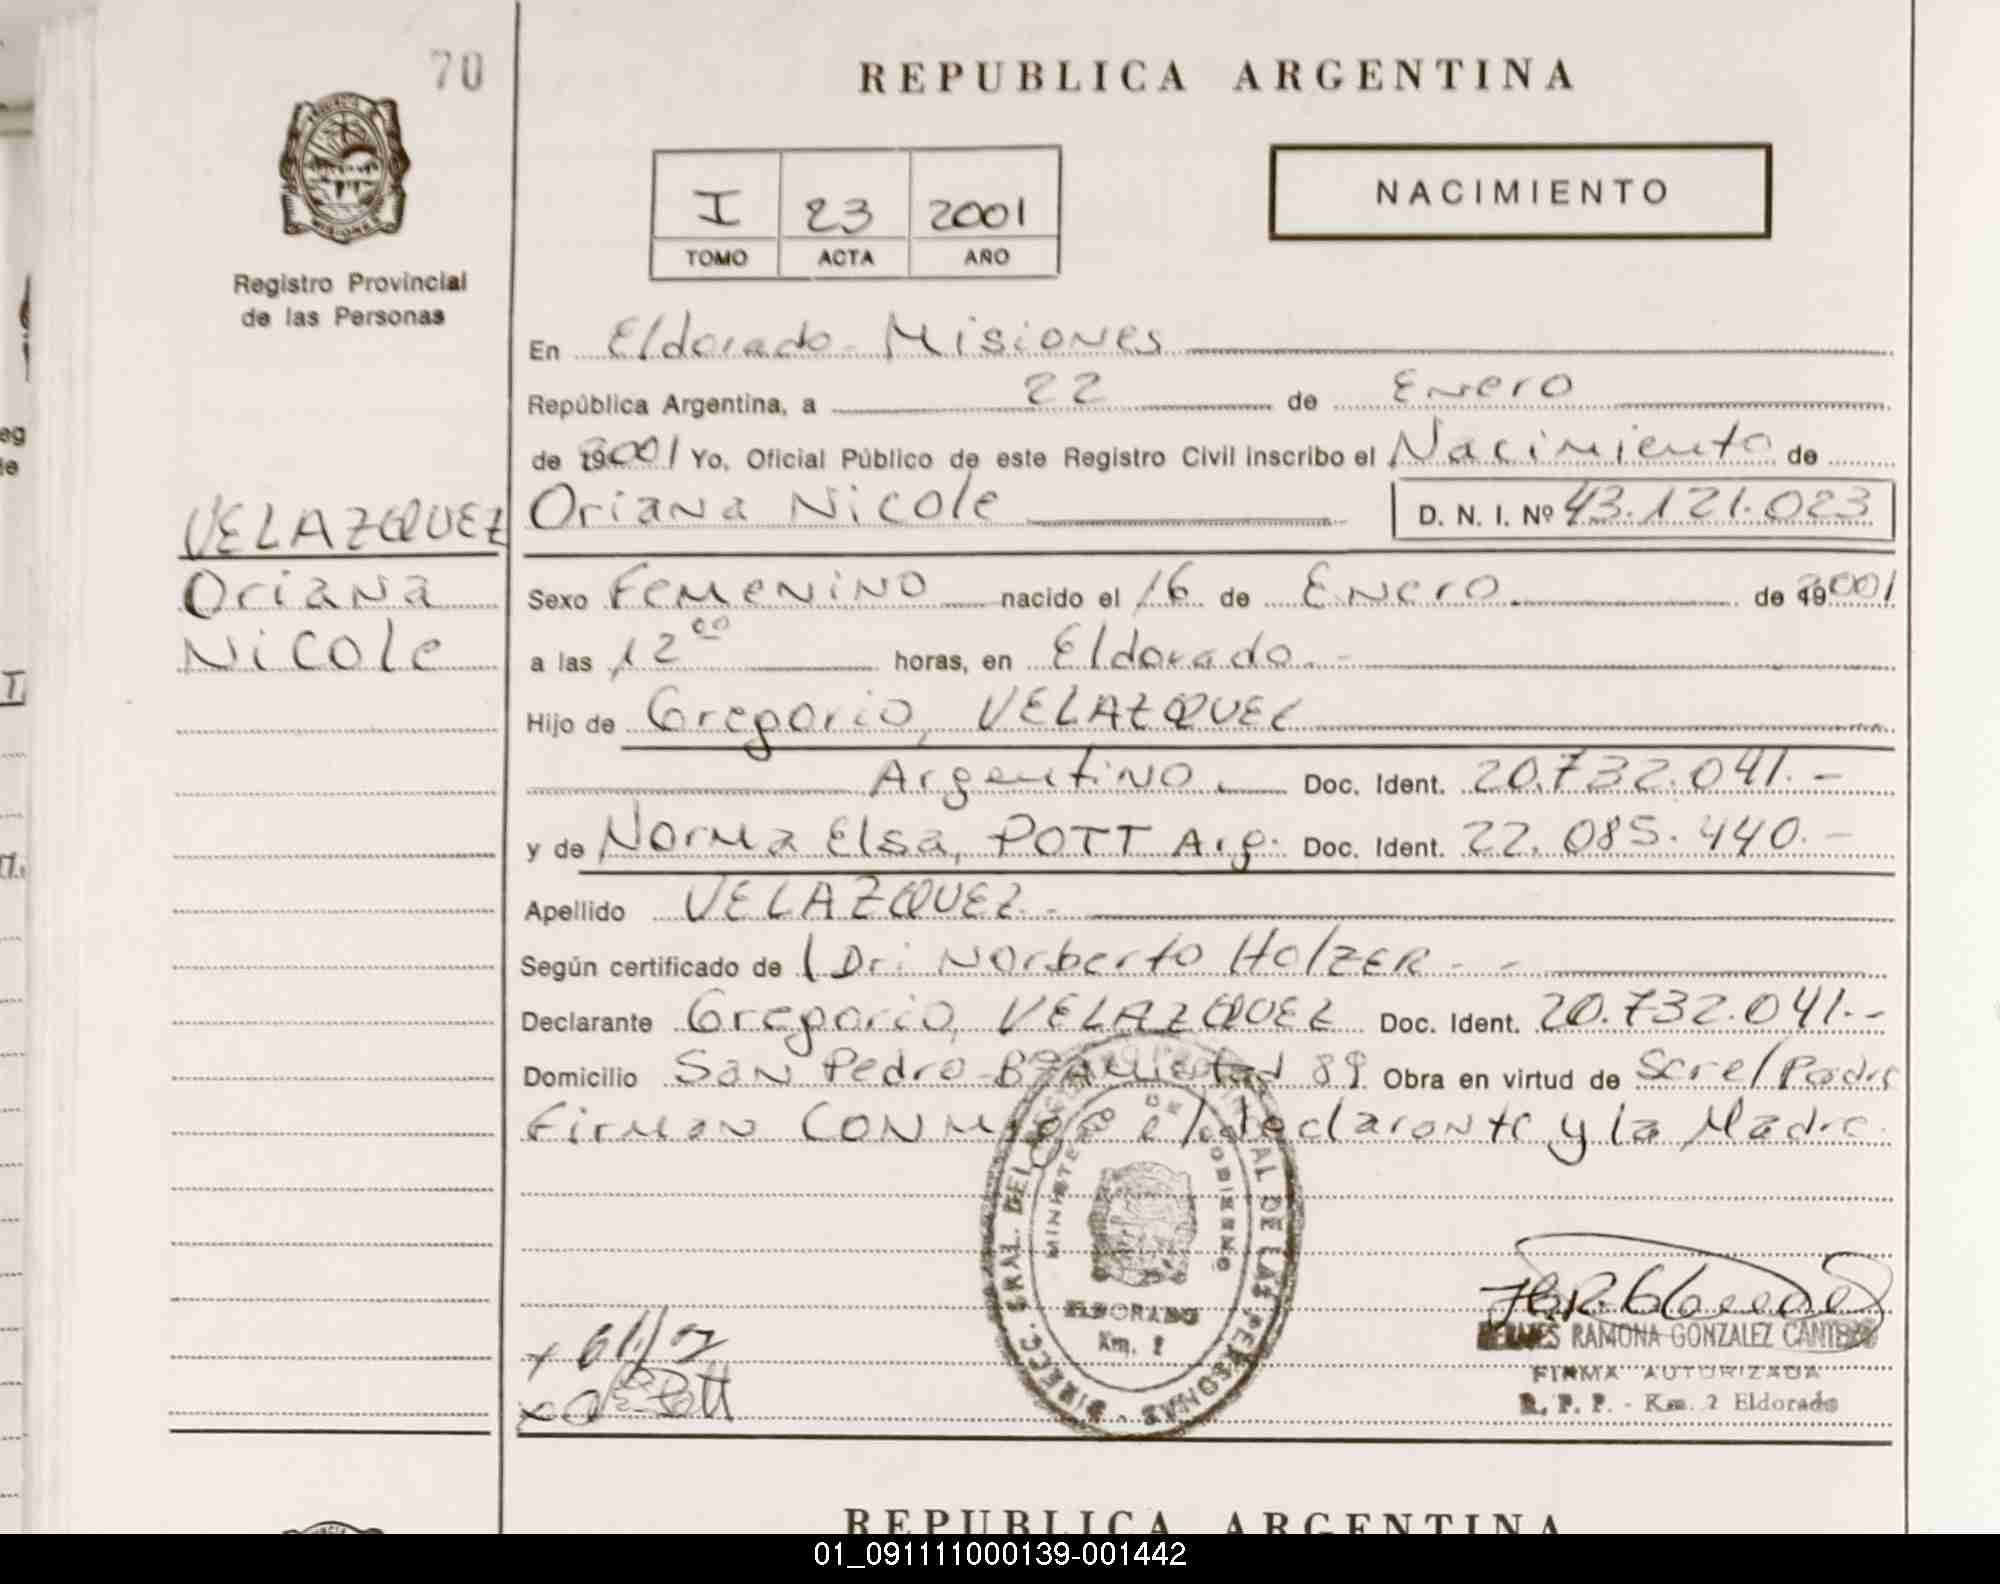 70
REPUBLICA ARGENTINA
I 23 2001
TOMO ACTA AÑO
NACIMIENTO
MISIONES
Registro Provincial
de las Personas
En Eldorado - Misiones
República Argentina, a 22 de Enero
de 2001 Yo, Oficial Público de este Registro Civil inscribo el Nacimiento de
VELAZQUEZ
Oriana Nicole D. N. I. Nº 43.121.023
Oriana
Sexo Femenino nacido el 16 de Enero de 2001
Nicole
a las 12 00 horas, en Eldorado.-
Hijo de Gregorio, VELAZQUEZ
Argentino. Doc. Ident. 20.732.041.-
y de Norma Elsa, POTT Arg. Doc. Ident. 22.085.440.-
Apellido VELAZQUEZ.-
Según certificado de Dr. Norberto HolzER - -
Declarante Gregorio, VELAZQUEZ Doc. Ident. 20.732.041.--
Domicilio San Pedro 89 Obra en virtud de Padre
Firman CONMigo el declarante y la Madre.
DIRECC. GRAL. DEL REGISTRO PROVINCIAL DE LAS PERSONAS
MINISTERIO DE GOBIERNO
ELDORADO
Km. 2
RAMONA GONZALEZ
FIRMA AUTORIZADA
R. P. P. - Km. 2 Eldorado
Pott
REPUBLICA ARGENTINA
01_091111000139-001442